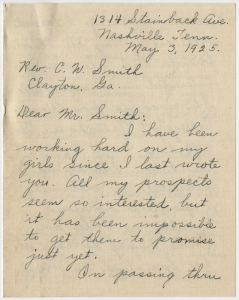 1314 Stainback Ave.
Nashville Tenn.
May 3, 1925.
Rev. C. W. Smith
Clayton, Ga.
Dear Mr. Smith:
I have been
working hard on my
girls since I last wrote
you. All my prospects
seem so interested, but
it has been impossible
to get them to promise
just yet.
In passing thru